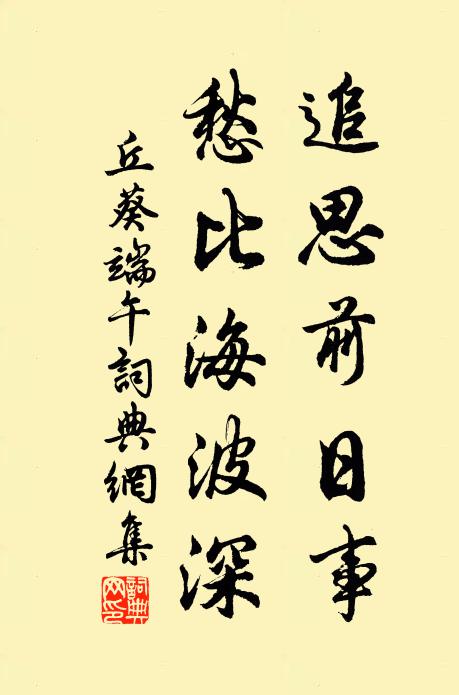 追思前日事
愁比海波深
丘葵端午詞典網集
詞典網印